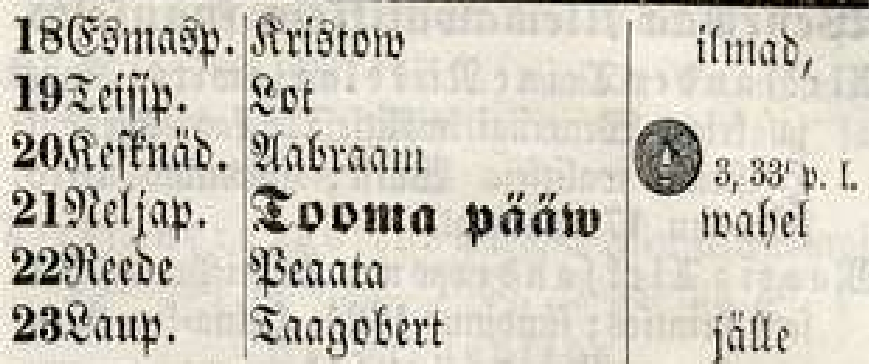 18 Esmasp. Kristow ilmad,
19 Teisip. Lot
20 Kesknäd. Aabraam 3, 33' p. l.
21 Neljap. Tooma pääw wahel
22 Reede Peaata
23 Laup. Taagobert jälle